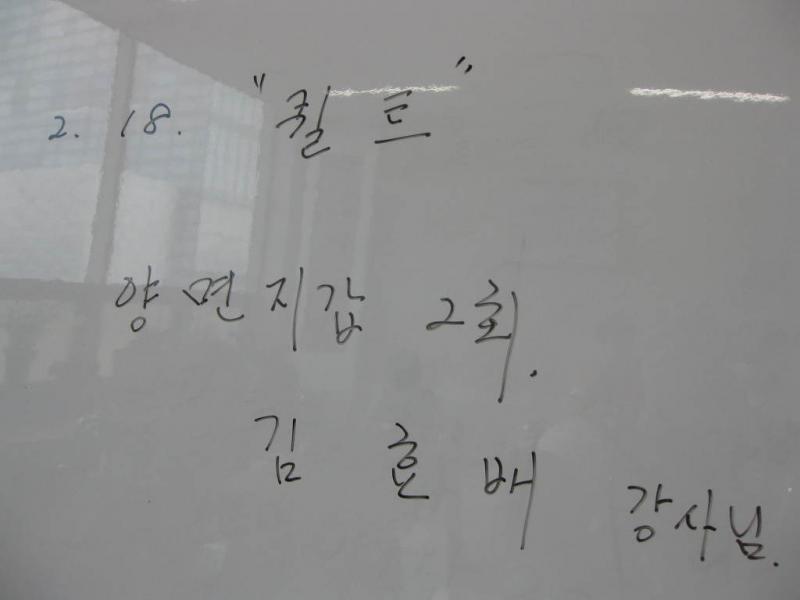 2. 18. "퀼트"
양면지갑 2회.
김 훈 배 강사님.